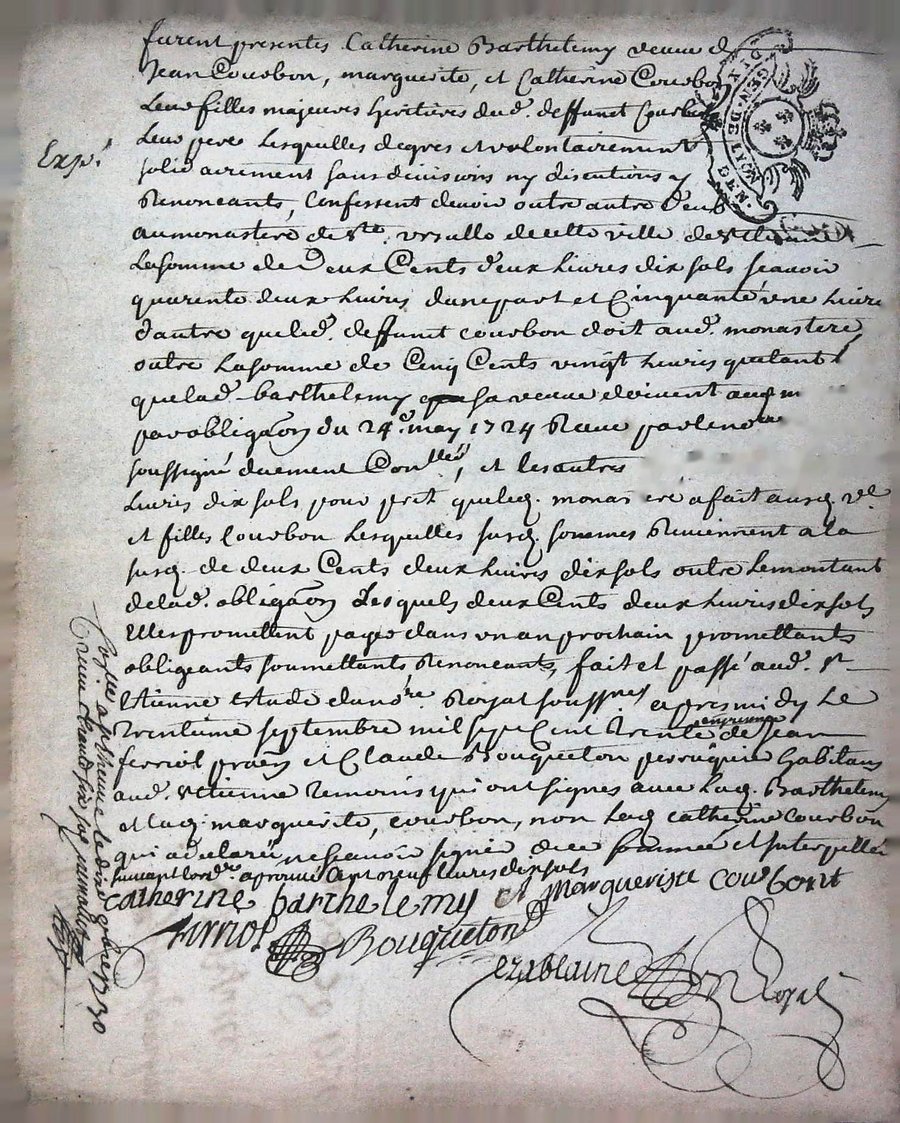 furent presentes Catherine Barthelemy veuve de
Jean Courbon, marguerite, et Catherine Courbon
Leur filles majeures heritieres dud. deffunt Courbon
Leur pere Lesquelles de gres et volontairement
Exp.
solidairement sans divisions ny discutions y
Renonceants, Confessent devoir outre autre deub
au monastere de Ste. ursulle de cette ville de St Etienne
La somme de Deux Cents deux Livres dix sols scavoir
quarente deux Livres d'une part et Cinquante une Livre
d'autre queled. deffunt courbon doit aud. monastere
outre La somme de Cinq Cents vingt Livres quitant
quelad. barthelemy sa veuve doivent aud m
par obligaon du 24e. may 1724 Receue par le no.re
soussigné duement Conllée, et les autres
Livres dix sols pour prit queleq. monastere a fait ausq. ve.
et filles Courbon Lesquelles susq. sommes Reviennent a la
susq. de deux Cents deux Livres dix sols outre Le montant
delad. obligaon Lesquels deux Cents deux Livres dix sols
Elles promettent payer dans un an prochain promettants
obligeants soumettants Renonceants, fait et passé aud. St
Etienne Etude du no.re Royal soussné apres midy Le
trentieme septembre mil sept Cent trente en presence de Jean
ferriol praen et Claude Bouqueton perruquier habitans
aud. St Etienne temoins qui ont signes avec Laq. Barthelemy
et Laq. marguerite, courbon, non Laq catherine Courbon
qui a declaré ne scavoir signer de ce sommée et Interpellée
suivant lord.re aprouvé sept neuf livres dix sols
Catherine barthelemy et Marguerite courbont
ferriol Bouqueton
Royal
GEN. DE LYON
DEN.